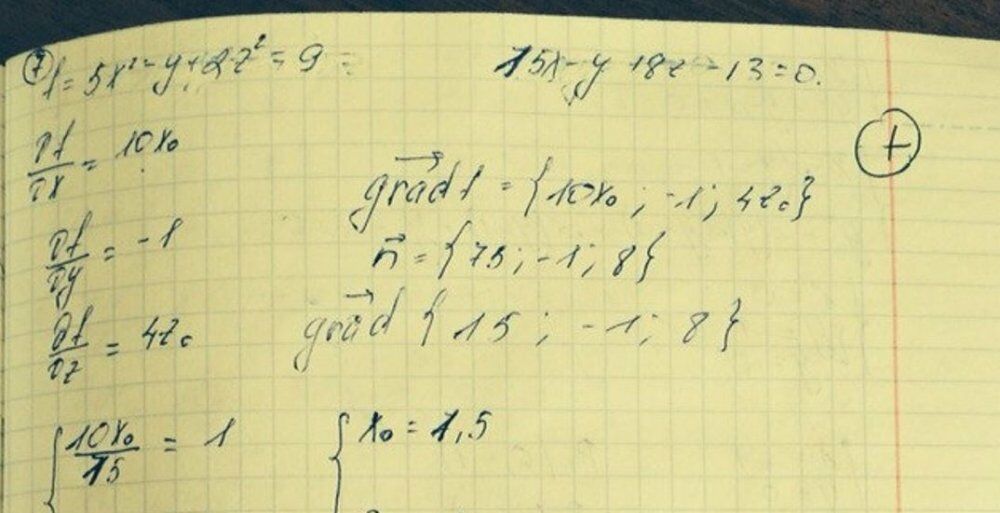 ⑦ f = 5x² - y + 2z² = 9 =
15x - y + 8z - 13 = 0.
∂f/∂x = 10x₀
+
grad f = {10x₀ ; -1 ; 4z₀}
∂f/∂y = -1
n = {15 ; -1 ; 8}
∂f/∂z = 4z₀
grad {15 ; -1 ; 8}
{ 10x₀/15 = 1
{ x₀ = 1,5